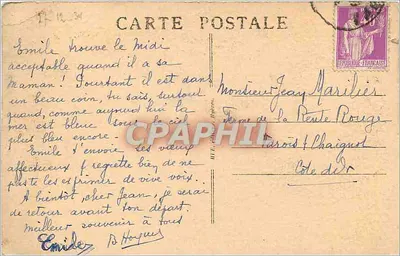 CARTE POSTALE
Emile trouve le Midi
acceptable quand il a sa
Maman! Pourtant il est dans
un beau coin, tu sais, surtout
quand, comme aujourd'hui la
mer est bleue le ciel
plus bleu encore.
Emile t'envoie ses vœux
affectueux & regrette bien de ne
pas te les exprimer de vive voix.
A bientôt, cher Jean, je serai
de retour avant ton départ.
Meilleur souvenir à tous
Emile
Monsieur Jean Marilier
Ferme de la Rente Rouge
Curtil
Côte d'Or
CPAPHIL